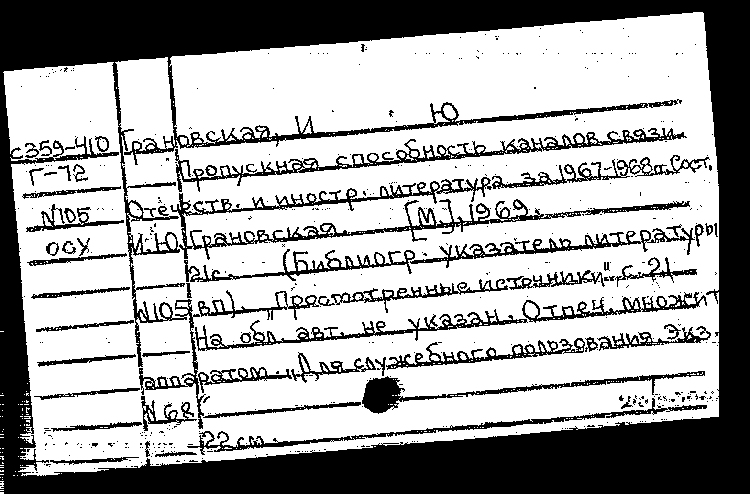 с359-410 Грановская, И Ю
Г-72 Пропускная способность каналов связи.
N105 Отечеств. и иностр. литература за 1967-1968гг. Сост.
ОСУ И.Ю. Грановская. [М.], 1969.
21с. (Библиогр. указатель литературы
N105 вп). "Просмотренные источники", с. 21
На обл. авт. не указан. Отпеч. множит
аппаратом. "Для служебного пользования. Экз.
N 68"
22 см.